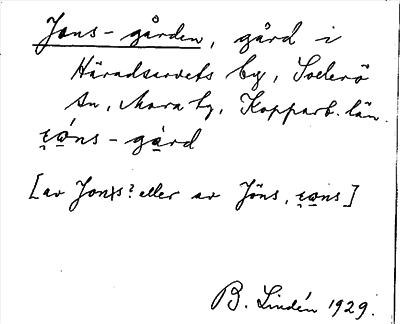 Jons-gården, gård i
Häradsarvets by, Sollerö
sn, Mora tg, Kopparb. län.
-gård
[av Jons? eller av Jöns, ]
B. Lindén 1929.